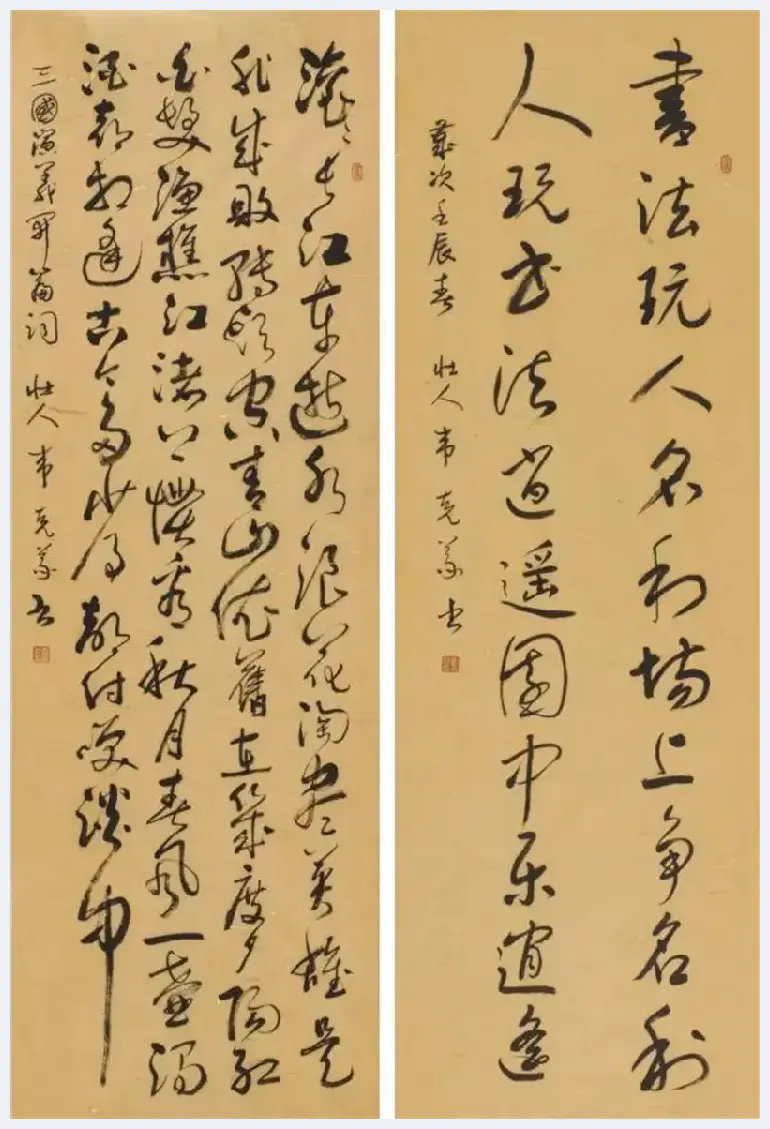 書法玩人名利场上争名利
人玩书法逍遥園中乐逍遥
歲次壬辰春 壮人韦克義书
滚滚长江东逝水浪花淘尽英雄是
非成败转头空青山依舊在幾度夕阳红
白髮渔樵江渚上惯看秋月春风一壶浊
酒喜相逢古今多少事都付笑谈中
三國演義开篇词 壮人韦克義书